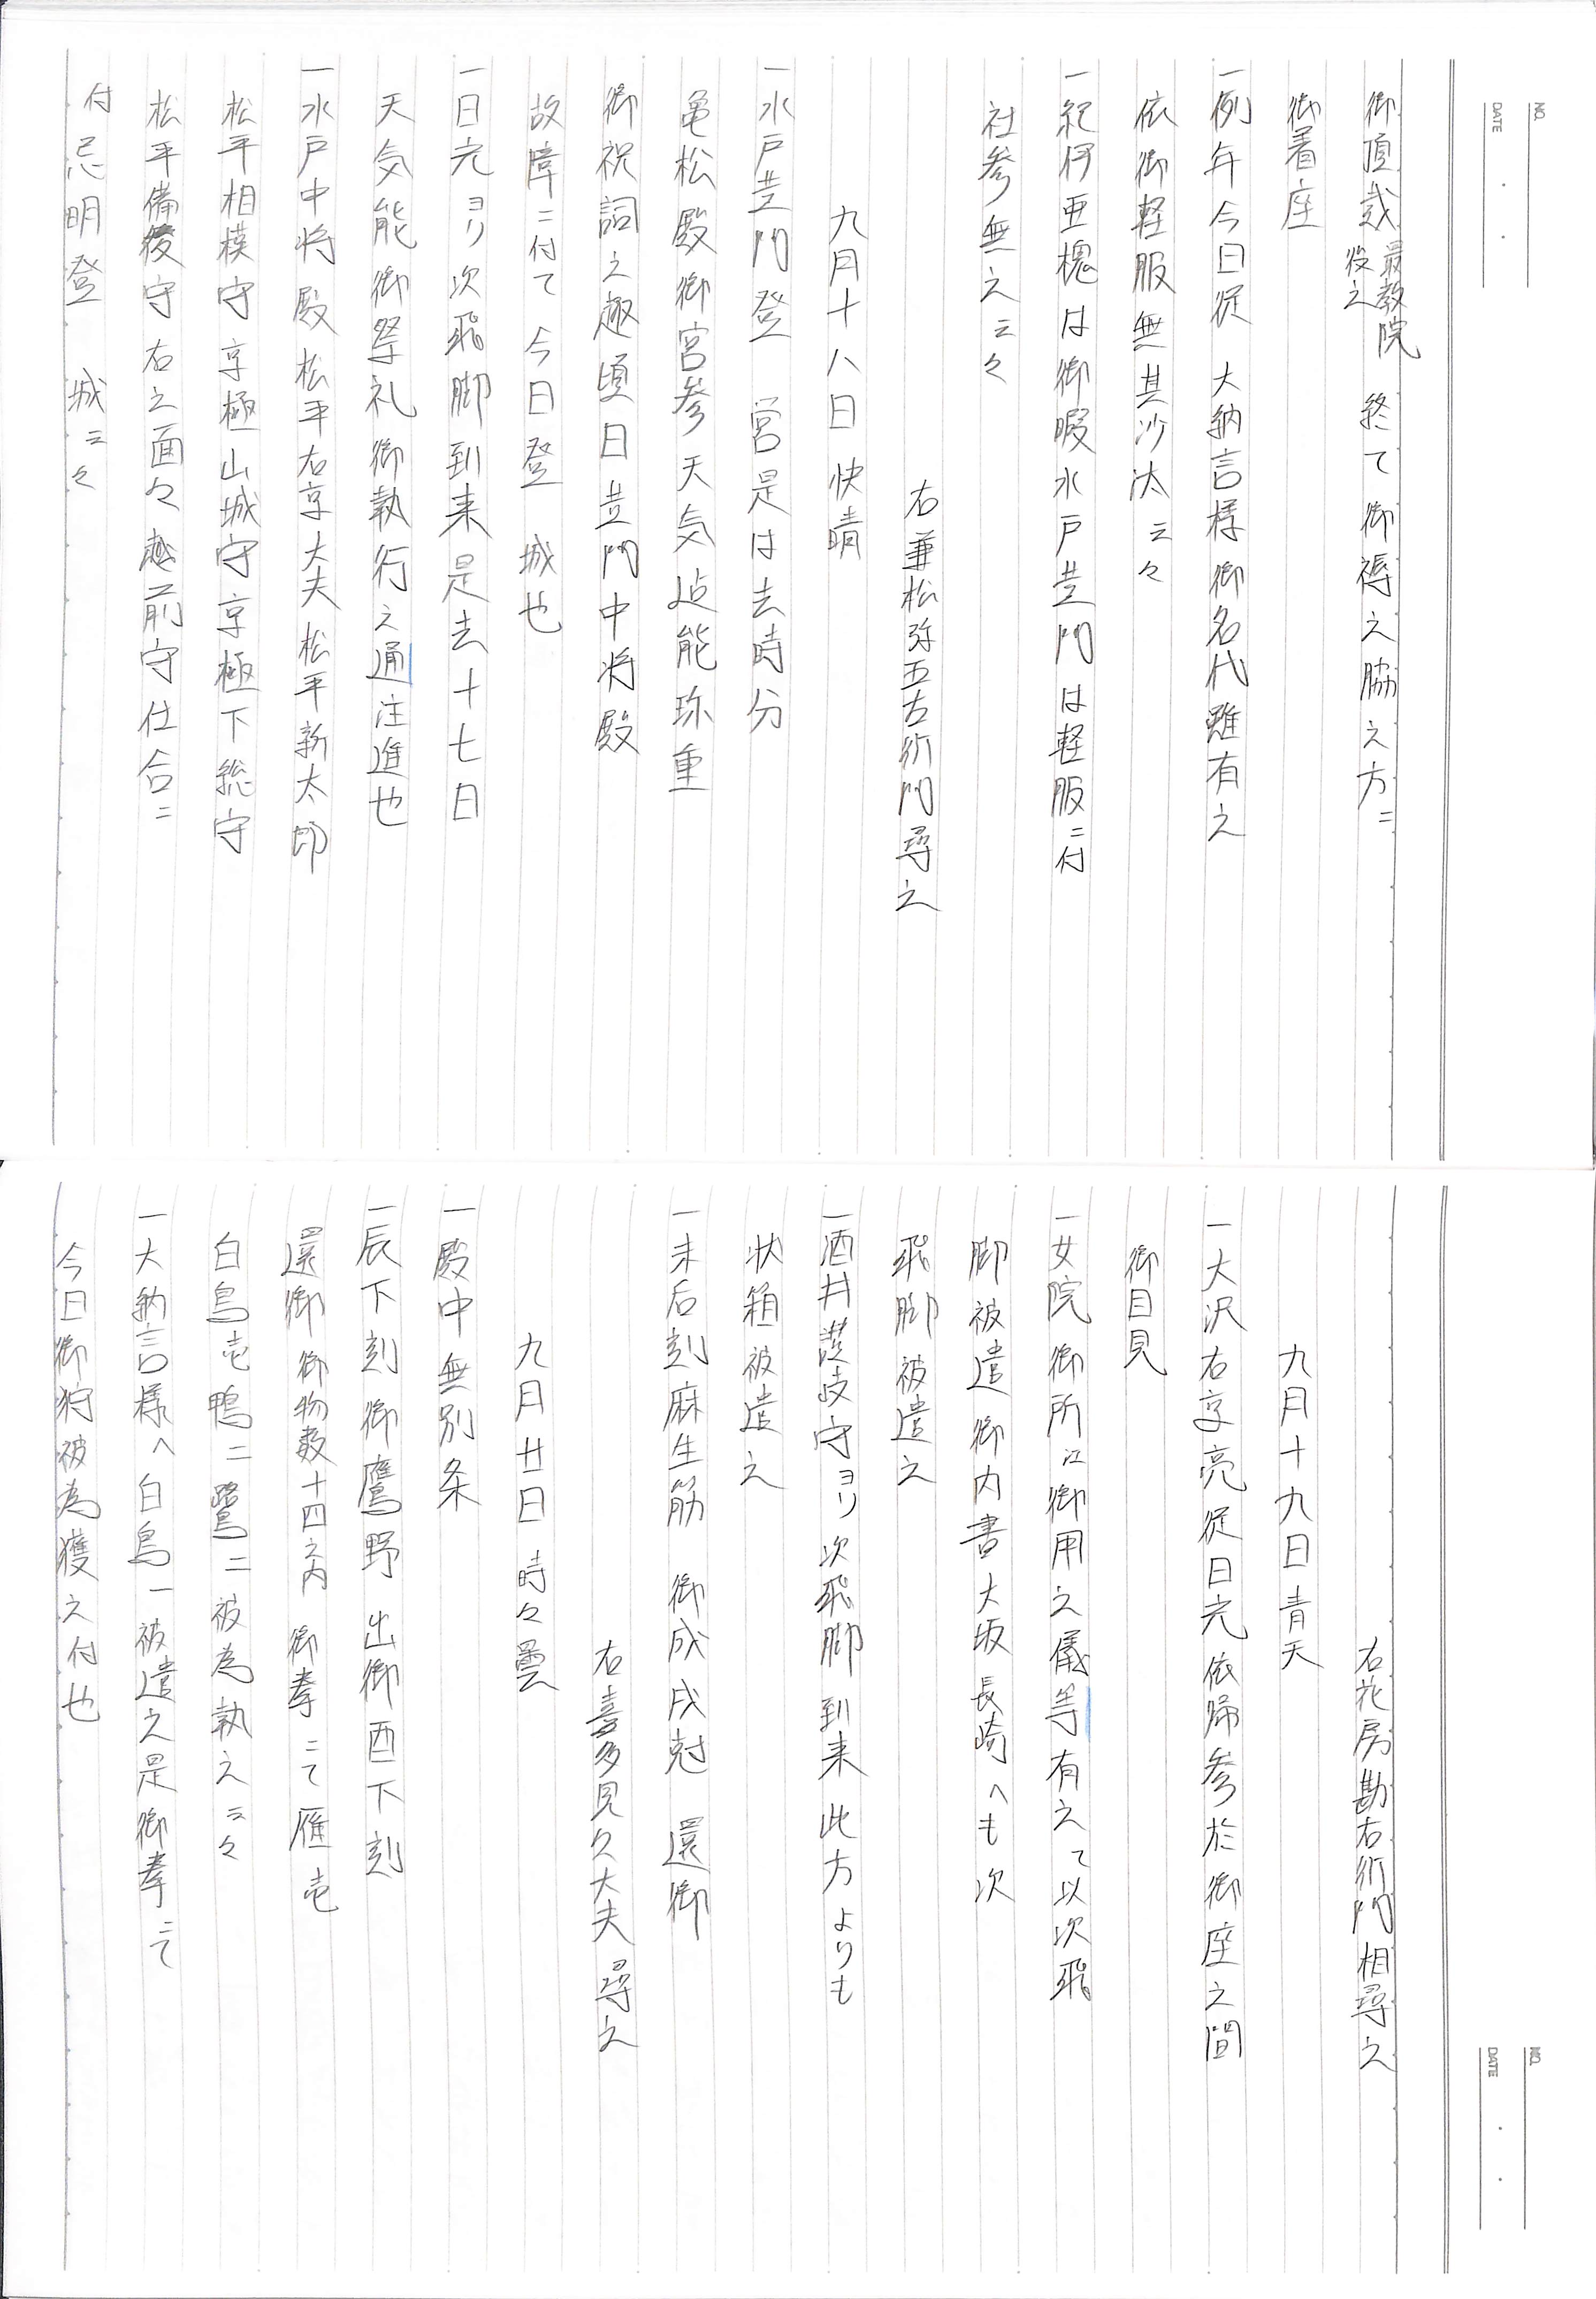 NO.
DATE ・ ・
御頂戴 最教院役之 終て御褥之脇之方ニ
御着座
一例年今日従 大納言様御名代雖有之
依御軽服無其沙汰云々
一紀伊亜槐は御暇水戸黄門は軽服ニ付
社参無之云々
右兼松弥五右衛門尋之
九月十八日 快晴
一水戸黄門登 営是は去時分
亀松殿御宮参天気迠能珎重
御祝詞之趣頃日黄門中将殿
故障ニ付て今日登 城也
一日光ヨリ次飛脚到来是去十七日
天気能御祭礼御執行之通注進也
一水戸中将殿松平右京大夫松平新太郎
松平相模守京極山城守京極下総守
松平備後守右之面々越前守仕合ニ
付忌明登 城云々
NO.
DATE ・ ・
右花房勘右衛門相尋之
九月十九日青天
一大沢右京亮従日光依帰参於御座之間
御目見
一女院御所江御用之儀等有之て以次飛
脚被遣御内書大坂長崎へも次
飛脚被遣之
一酒井讃岐守ヨリ次飛脚到来此方よりも
状箱被遣之
一未后刻麻生筋 御成戌尅 還御
右喜多見久大夫尋之
九月廿日 時々曇
一殿中無別条
一辰下刻御鷹野 出御酉下刻
還御御物数十四之内 御拳ニて雁壱
白鳥壱鴨二鷺二被為執之云々
一大納言様へ白鳥一被遣之是御拳ニて
今日御狩被為獲之付也